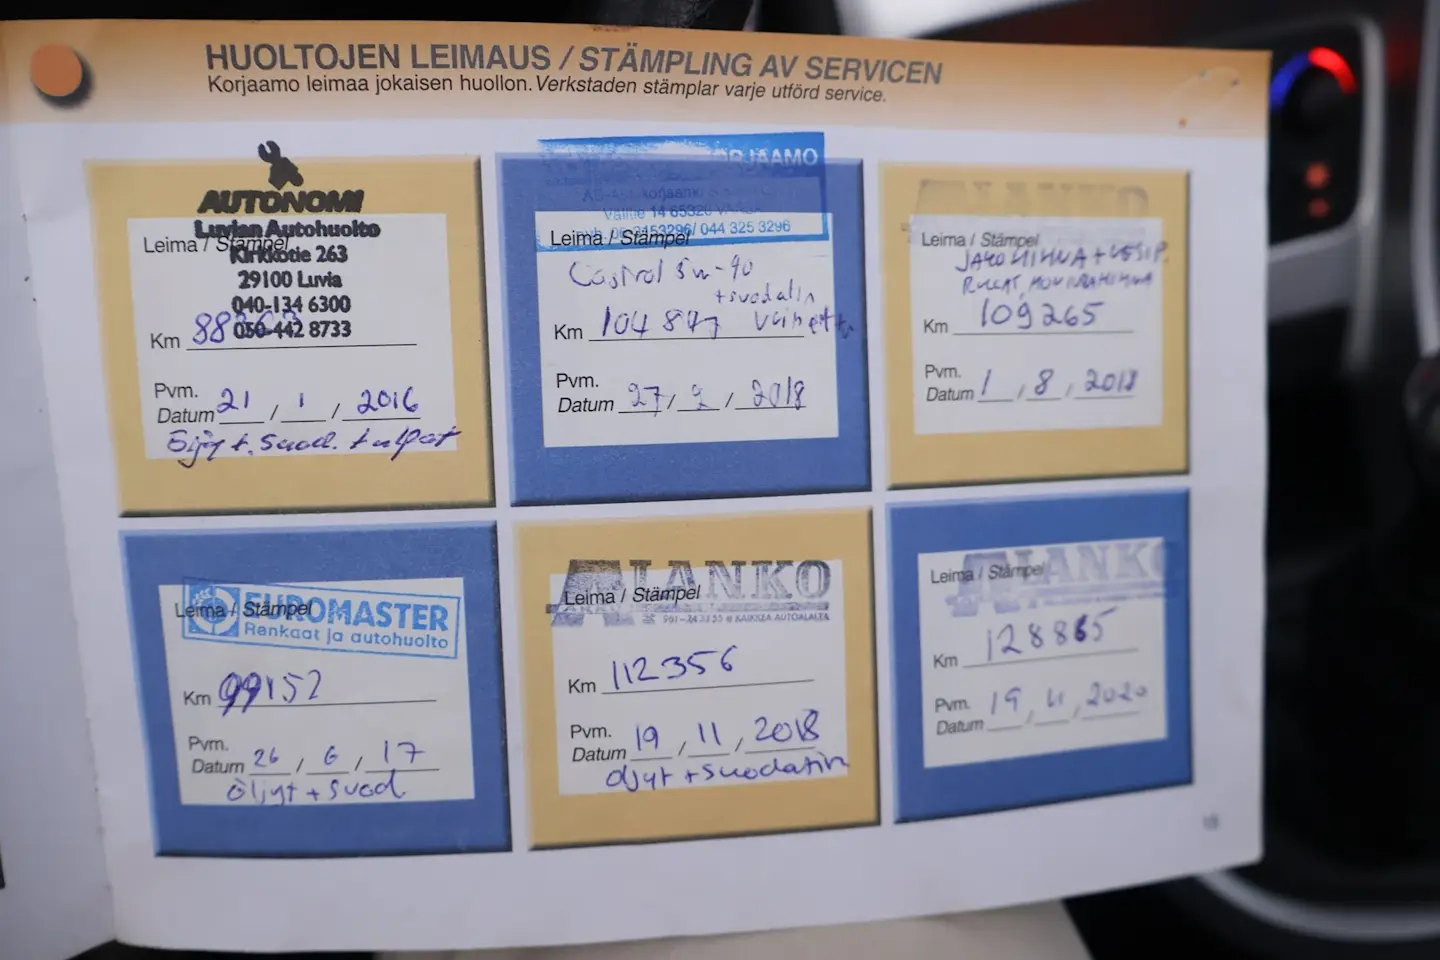 HUOLTOJEN LEIMAUS / STÄMPLING AV SERVICEN
Korjaamo leimaa jokaisen huollon. Verkstaden stämplar varje utförd service.
AUTONOMI
Luvian Autohuolto
Leima / Stämpel
Kirkkotie 263
29100 Luvia
040-134 6300
050-442 8733
Km 88
Pvm.
Datum 21 / 1 / 2016
Öljyt. Suod. tulpat
KORJAAMO
14 65320
3153296/ 044 325 3296
Leima / Stämpel
Castrol 5w-40
+suodatin
Km 104847 vaihettu
Pvm.
Datum 27 / 2 / 2018
LANKO
Leima / Stämpel
JAKOHIHNA + VESIP.
RULLAT, MONIURAHIHNA
Km 109265
Pvm.
Datum 1 / 8 / 2018
EUROMASTER
Renkaat ja autohuolto
Leima / Stämpel
Km 99152
Pvm.
Datum 26 / 6 / 17
öljyt + suod
ALANKO
Leima / Stämpel
KAIKKEA AUTOALALTA
Km 112356
Pvm.
Datum 19 / 11 / 2018
öljyt + suodatin
ALANKO
Leima / Stämpel
Km 128865
Pvm.
Datum 19, 11, 2020